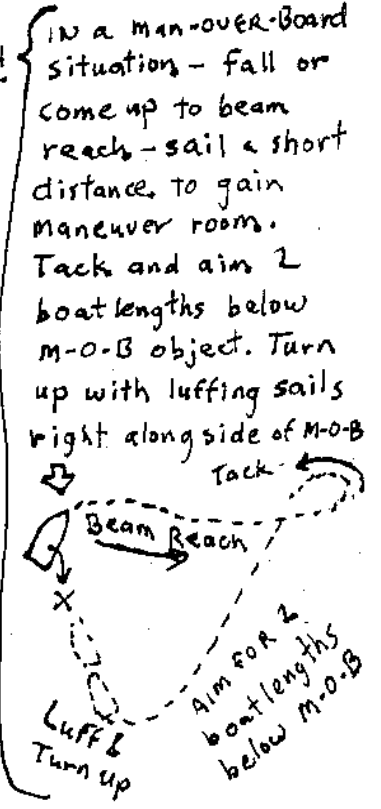 IN a man-OVER-Board
situation - fall or
come up to beam
reach - sail a short
distance, to gain
maneuver room.
Tack and aim 2
boat lengths below
M-O-B object. Turn
up with luffing sails
right along side of M-O-B
Tack
Beam Reach
X
Aim FOR 2
boat lengths
below M-O-B
Luff &
Turn up